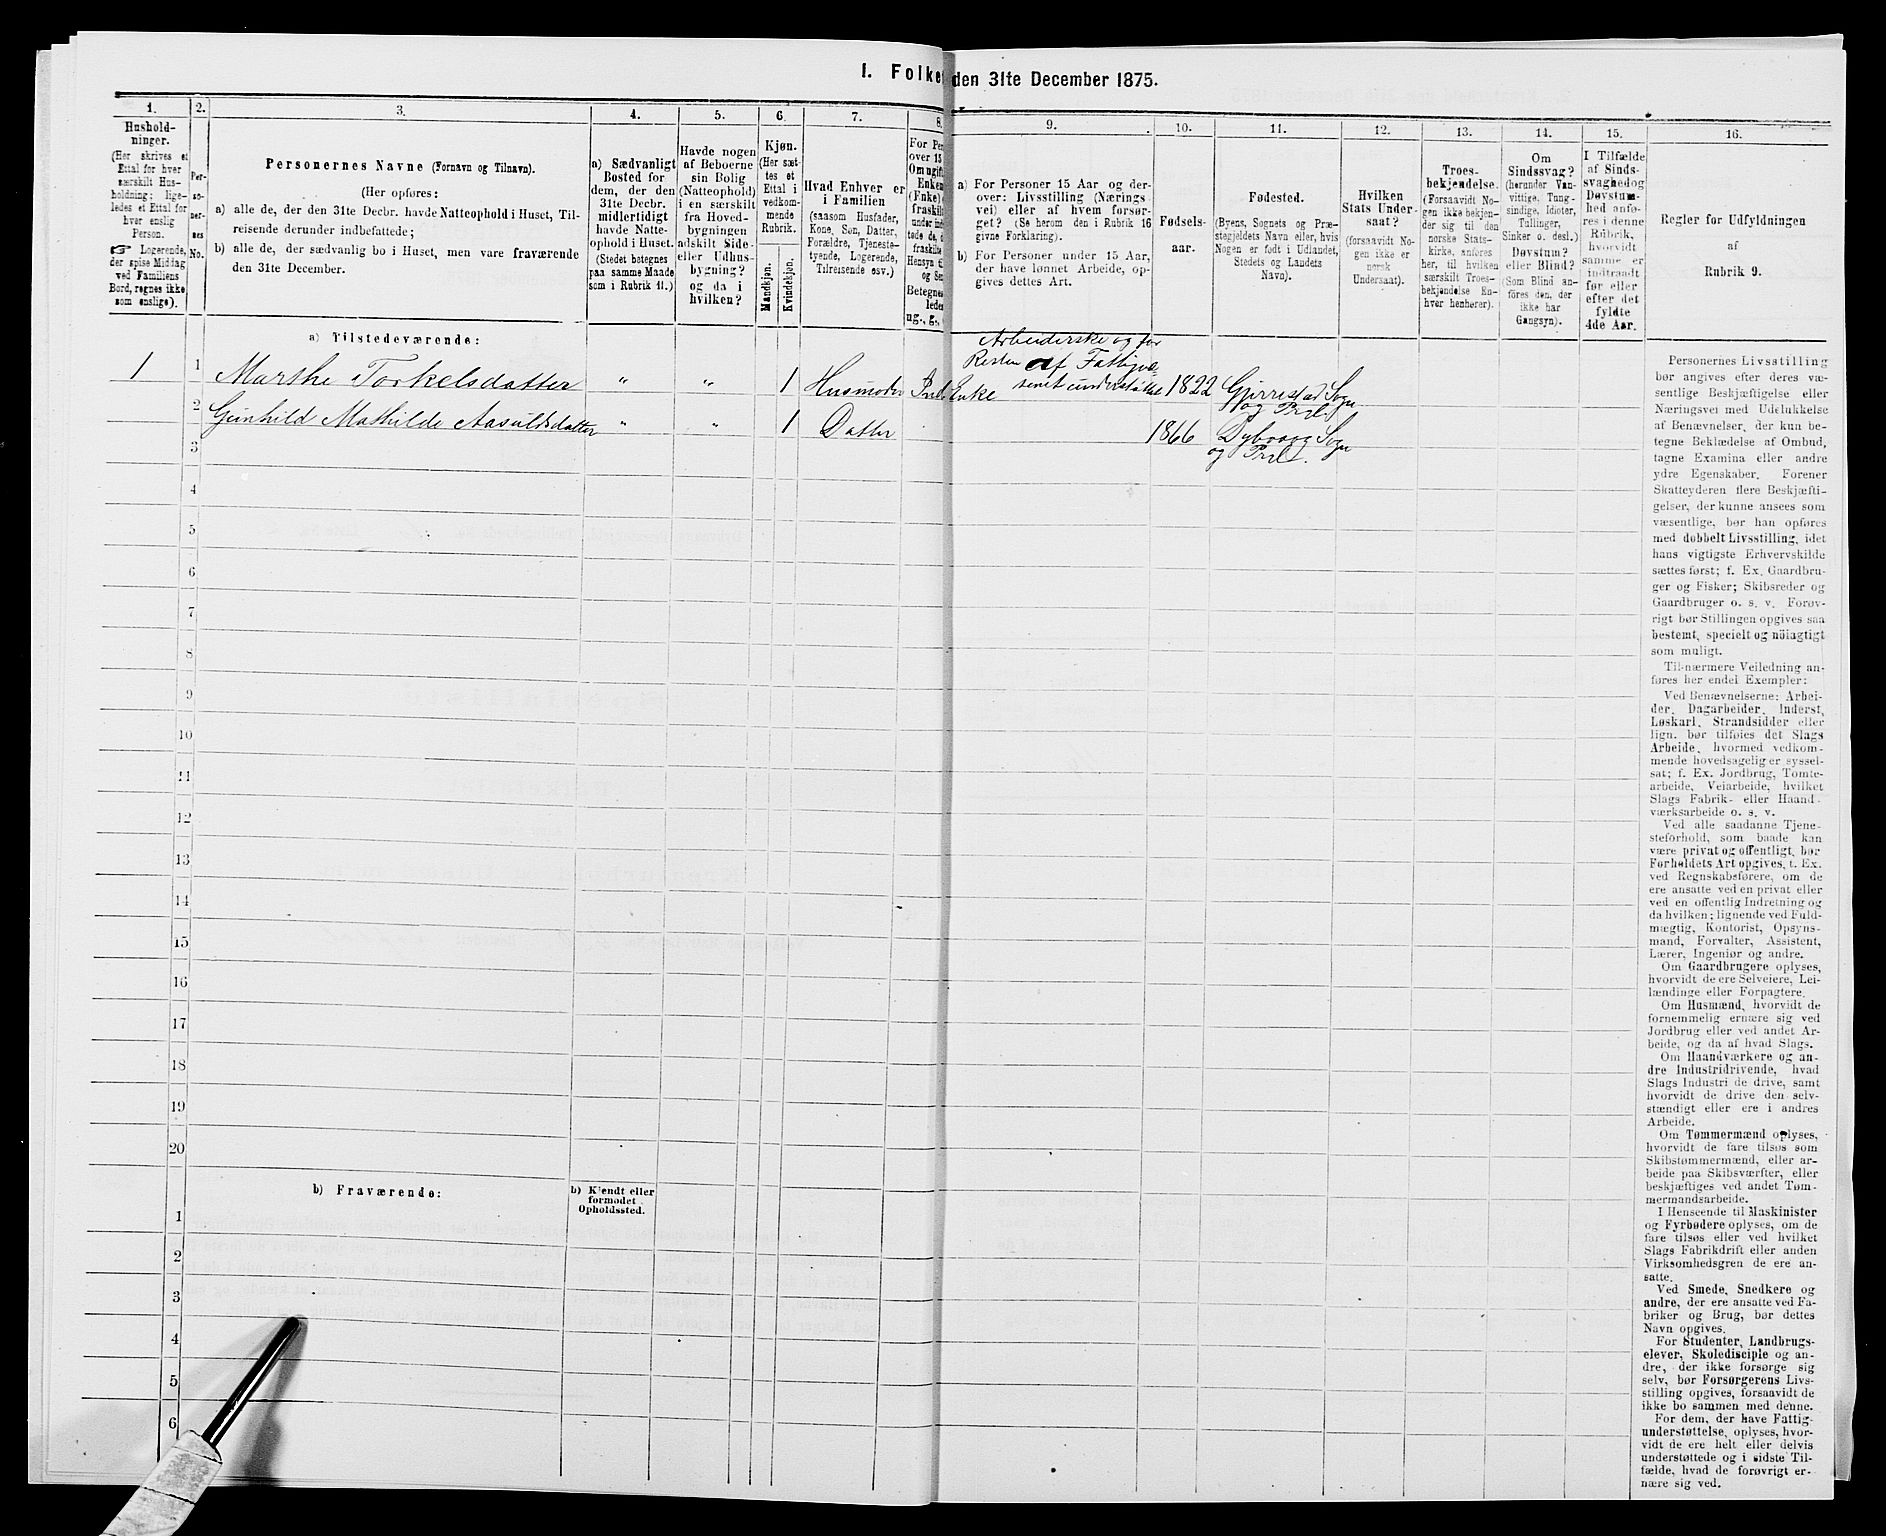 1. Folke den 31te December 1875.
1.
Hushold-
ninger.
(Her skrives et
Ettal for hver
særskilt Hus-
holdning; lige-
ledes et Ettal for
hver enslig
Person.
☞ Logerende,
der spise Middag
ved Familiens
Bord, regnes ikke
som enslige).
2.
Per-
so-
ner-
nes
No.
3.
Personernes Navne (Fornavn og Tilnavn).
(Her opføres:
a) alle de, der den 31te Decbr. havde Natteophold i Huset, Til-
reisende derunder indbefattede;
b) alle de, der sædvanlig bo i Huset, men vare fraværende
den 31te December.
4.
a) Sædvanligt
Bosted for
dem, der den
31te Decbr.
midlertidigt
havde Natte-
ophold i Huset.
(Stedet betegnes
paa samme Maade
som i Rubrik 11.)
5.
Havde nogen
af Beboerne
sin Bolig
(Natteophold)
i en særskilt
fra Hoved-
bygningen
adskilt Side-
eller Udhus-
bygning?
og da i
hvilken?
6.
Kjøn.
(Her sæt-
tes et
Ettal i
vedkom-
mende
Rubrik.
Mandkjøn.
Kvindekjøn.
7.
Hvad Enhver er
i Familien
(saasom Husfader,
Kone, Søn, Datter,
Forældre, Tjeneste-
tyende, Logerende,
Tilreisende osv.)
8.
For Per
over 15
Om ugift
Enkem
(Enke)
fraskilt
under ind
tede de, d
fraskilte
Hensyn ti
og Sen
Betegnes
ledes
ug., g.,
9.
a) For Personer 15 Aar og der-
over: Livsstilling (Nærings
vei) eller af hvem forsør-
get? (Se herom den i Rubrik 16
givne Forklaring).
b) For Personer under 15 Aar,
der have lønnet Arbeide, op-
gives dettes Art.
10.
Fødsels-
aar.
11.
Fødested.
(Byens, Sognets og Præ-
stegjeldets Navn eller, hvis
Nogen er født i Udlandet,
Stedets og Landets
Navn).
12.
Hvilken
Stats Under-
saat?
(forsaavidt No-
gen ikke er
norsk
Undersaat).
13.
Troes-
bekjendelse.
(Forsaavidt No-
gen ikke bekjen-
der sig til den
norske Stats-
kirke, anføres
her, til hvilken
særskilt Troes-
bekjendelse En-
hver henhører).
14.
Om
Sindssvag?
(herunder Van-
vittige, Tung-
sindige, Idioter,
Tullinger,
Sinker o. desl.)
Døvstum?
eller Blind?
(Som Blind an-
føres den, der
ikke har
Gangsyn).
15.
I Tilfælde
af Sinds-
svaghed og
Døvstum-
hed anfø-
res i denne
Rubrik,
hvorvidt
samme er
indtraadt
før eller
efter det
fyldte
4de Aar.
16.
Regler for Udfyldningen
af
Rubrik 9.
a) Tilstedeværende:
Arbeiderske og for
Resten af Fattigvæ-
senet understøttet
1 1 Marthe Torkelsdatter " " 1 Husmoder Enke 1822 Gjerrestad Sogn
og Prgl.
2 Gunhild Mathilde Aasulfsdatter " " 1 Datter 1866 Dybvaag Sogn
og Prgl.
3
4
5
6
7
8
9
10
11
12
13
14
15
16
17
18
19
20
b) Fraværende:
b) Kjendt eller
formodet
Opholdssted.
1
2
3
4
5
6
Personernes Livsstilling
bør angives efter deres væ-
sentlige Beskjæftigelse eller
Næringsvei med Udelukkelse
af Benævnelser, der kun be-
tegne Beklædelse af Ombud,
tagne Examina eller andre
ydre Egenskaber. Forener
Skatteyderen flere Beskjæfti-
gelser, der kunne ansees som
væsentlige, bør han opføres
med dobbelt Livsstilling, idet
hans vigtigste Erhvervskilde
sættes først; f. Ex. Gaardbru-
ger og Fisker; Skibsreder og
Gaardbruger o. s. v. Forøv-
rigt bør Stillingen opgives saa
bestemt, specielt og nöiagtigt
som muligt.
Til nærmere Veiledning an-
føres her endel Exempler:
Ved Benævnelserne: Arbei-
der, Dagarbeider, Inderst,
Løskarl, Strandsidder eller
lign. bør tilføies det Slags
Arbeide, hvormed vedkom-
mende hovedsagelig er syssel-
sat; f. Ex. Jordbrug, Tomte-
arbeide, Veiarbeide, hvilket
Slags Fabrik- eller Haand-
værksarbeide o. s. v.
Ved alle saadanne Tjene-
steforhold, som baade kan
være privat og offentligt, bør
Forholdets Art opgives, t. Ex.
ved Regnskabsførere, om de
ere ansatte ved en privat eller
ved en offentlig Indretning og
da hvilken; lignende ved Fuld-
mægtig, Kontorist, Opsyns-
mand, Forvalter, Assistent,
Lærer, Ingeniør og andre.
Om Gaardbrugere oplyses,
hvorvidt de ere Selveiere, Lei-
lændinge eller Forpagtere.
Om Husmænd, hvorvidt de
fornemmelig ernære sig ved
Jordbrug eller ved andet Ar-
beide, og da af hvad Slags.
Om Haandværkere og an-
dre Industridrivende, hvad
Slags Industri de drive, samt
hvorvidt de drive den selv-
stændigt eller ere i andres
Arbeide.
Om Tømmermænd oplyses,
hvorvidt de fare tilsøs som
Skibstømmermænd, eller ar-
beide paa Skibsværfter, eller
beskjæftiges ved andet Tøm-
mermandsarbeide.
I Henseende til Maskinister
og Fyrbødere oplyses, om de
fare tilsøs eller ved hvilket
Slags Fabrikdrift eller anden
Virksomhedsgren de ere an-
satte.
Ved Smede, Snedkere og
andre, der ere ansatte ved Fa-
briker og Brug, bør dettes
Navn opgives.
For Studenter, Landbrugs-
elever, Skoledisciple og an-
dre, der ikke forsørge sig
selv, bør Forsørgerens Livs-
stilling opgives, forsaavidt de
ikke bo sammen med denne.
For dem, der have Fattig-
understøttelse, oplyses, hvor-
vidt de ere helt eller delvis
understøttede og i sidste Til-
fælde, hvad de forøvrigt er-
nære sig ved.